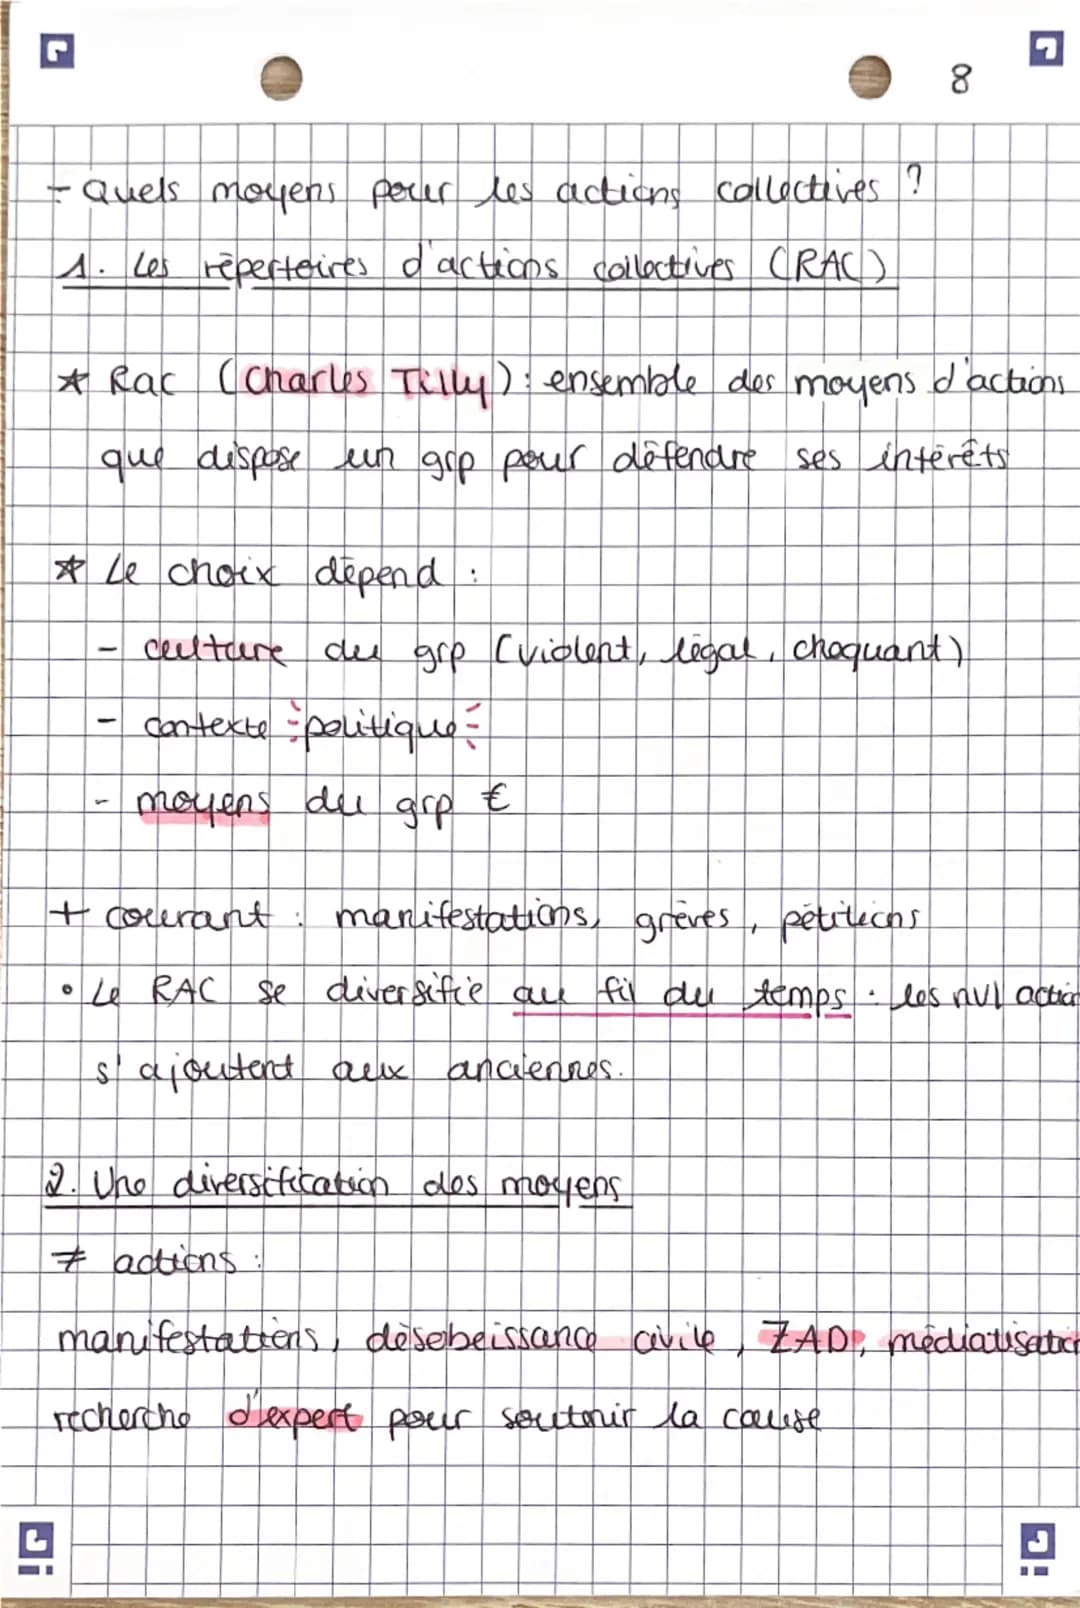 8
- Quels moyens pour les actions collectives ?
1. Les répertoires d'actions collectives (RAC)
* Rac (Charles Tilly) : ensemble des moyens d'actions
que dispose un grp pour défendre ses intérêts
* Le choix dépend :
- culture du grp (violent, légal, choquant)
- contexte politique
- moyens du grp €
+ courant : manifestations, grèves, pétitions
• Le RAC se diversifie au fil du temps : les nvl action
s'ajoutent aux anciennes.
2. Une diversification des moyens
≠ actions :
manifestations, désobeissance civile, ZAD, médiatisation
recherche d'expert pour soutenir la cause